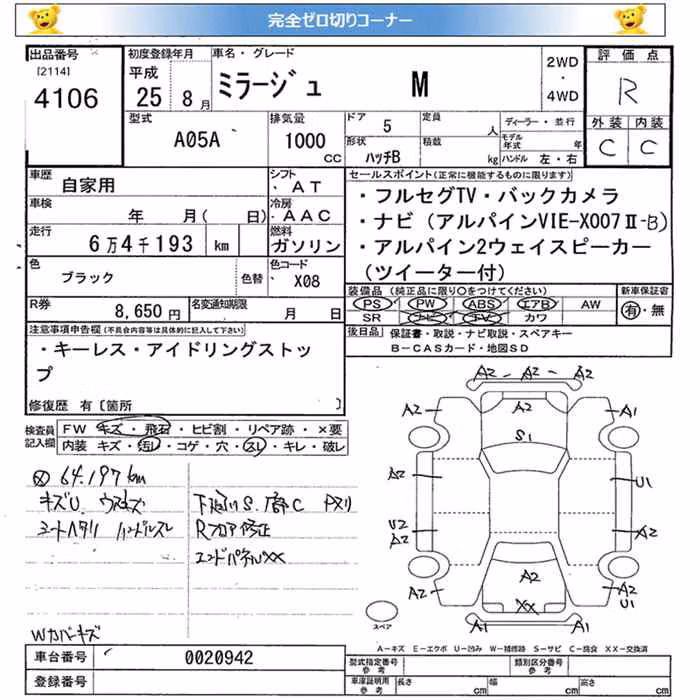 完全ゼロ切りコーナー
出品番号
[2114]
4106
初度登録年月
平成
25 8月
車名・グレード
ミラージュ M
2WD
・
4WD
評価点
R
外装 内装
C C
型式
A05A
排気量
1000
CC
ドア 5
形状
ハッチB
定員
人
積載
kg
ディーラー・並行
モデル
年式 年
ハンドル 左・右
車歴
自家用
シフト
・AT
車検
年 月( 日)
冷房
・AAC
走行
6万4千193 km
燃料
ガソリン
色
ブラック
色替
色コード
・X08
R券
8,650円
名変通知期限
月 日
セールスポイント(正常に機能するものに限ります)
・フルセグTV・バックカメラ
・ナビ(アルパインVIE-X007Ⅱ-B)
・アルパイン2ウェイスピーカー
(ツイーター付)
装備品(純正品に限り○をつけてください)
PS PW ABS エアB AW
SR ナビ TV カワ
新車保証書
有・無
後日品
保証書・取説・ナビ取説・スペアキー
B-CASカード・地図SD
注意事項申告欄(不具合内容等は具体的に記入して下さい)
・キーレス・アイドリングストッ
プ
修復歴 有〔箇所 〕
検査員
記入欄
FW キズ・飛石・ヒビ割・リペア跡・×要
内装 キズ・汚レ・コゲ・穴・スレ・キレ・破レ
64.197km
キズU ウスキズ
シートヘタリ ハンドルスレ
下廻りS.腐C
Rフロア修正
エンドパネルXX
Wカバーキズ
A2 A2 A2
A2 A2 A1
S1
A2 U1
U2
A2 A2
A2 A2 A2
U1
XX
A1 A1
スペア
A-キズ E-エクボ U-凹み W-補修跡 S-サビ C-腐食 XX-交換済
車台番号
0020942
登録番号
型式指定番号
参考
類別区分番号
参考
車庫証明用
参考
長さ cm
幅 cm
高さ cm